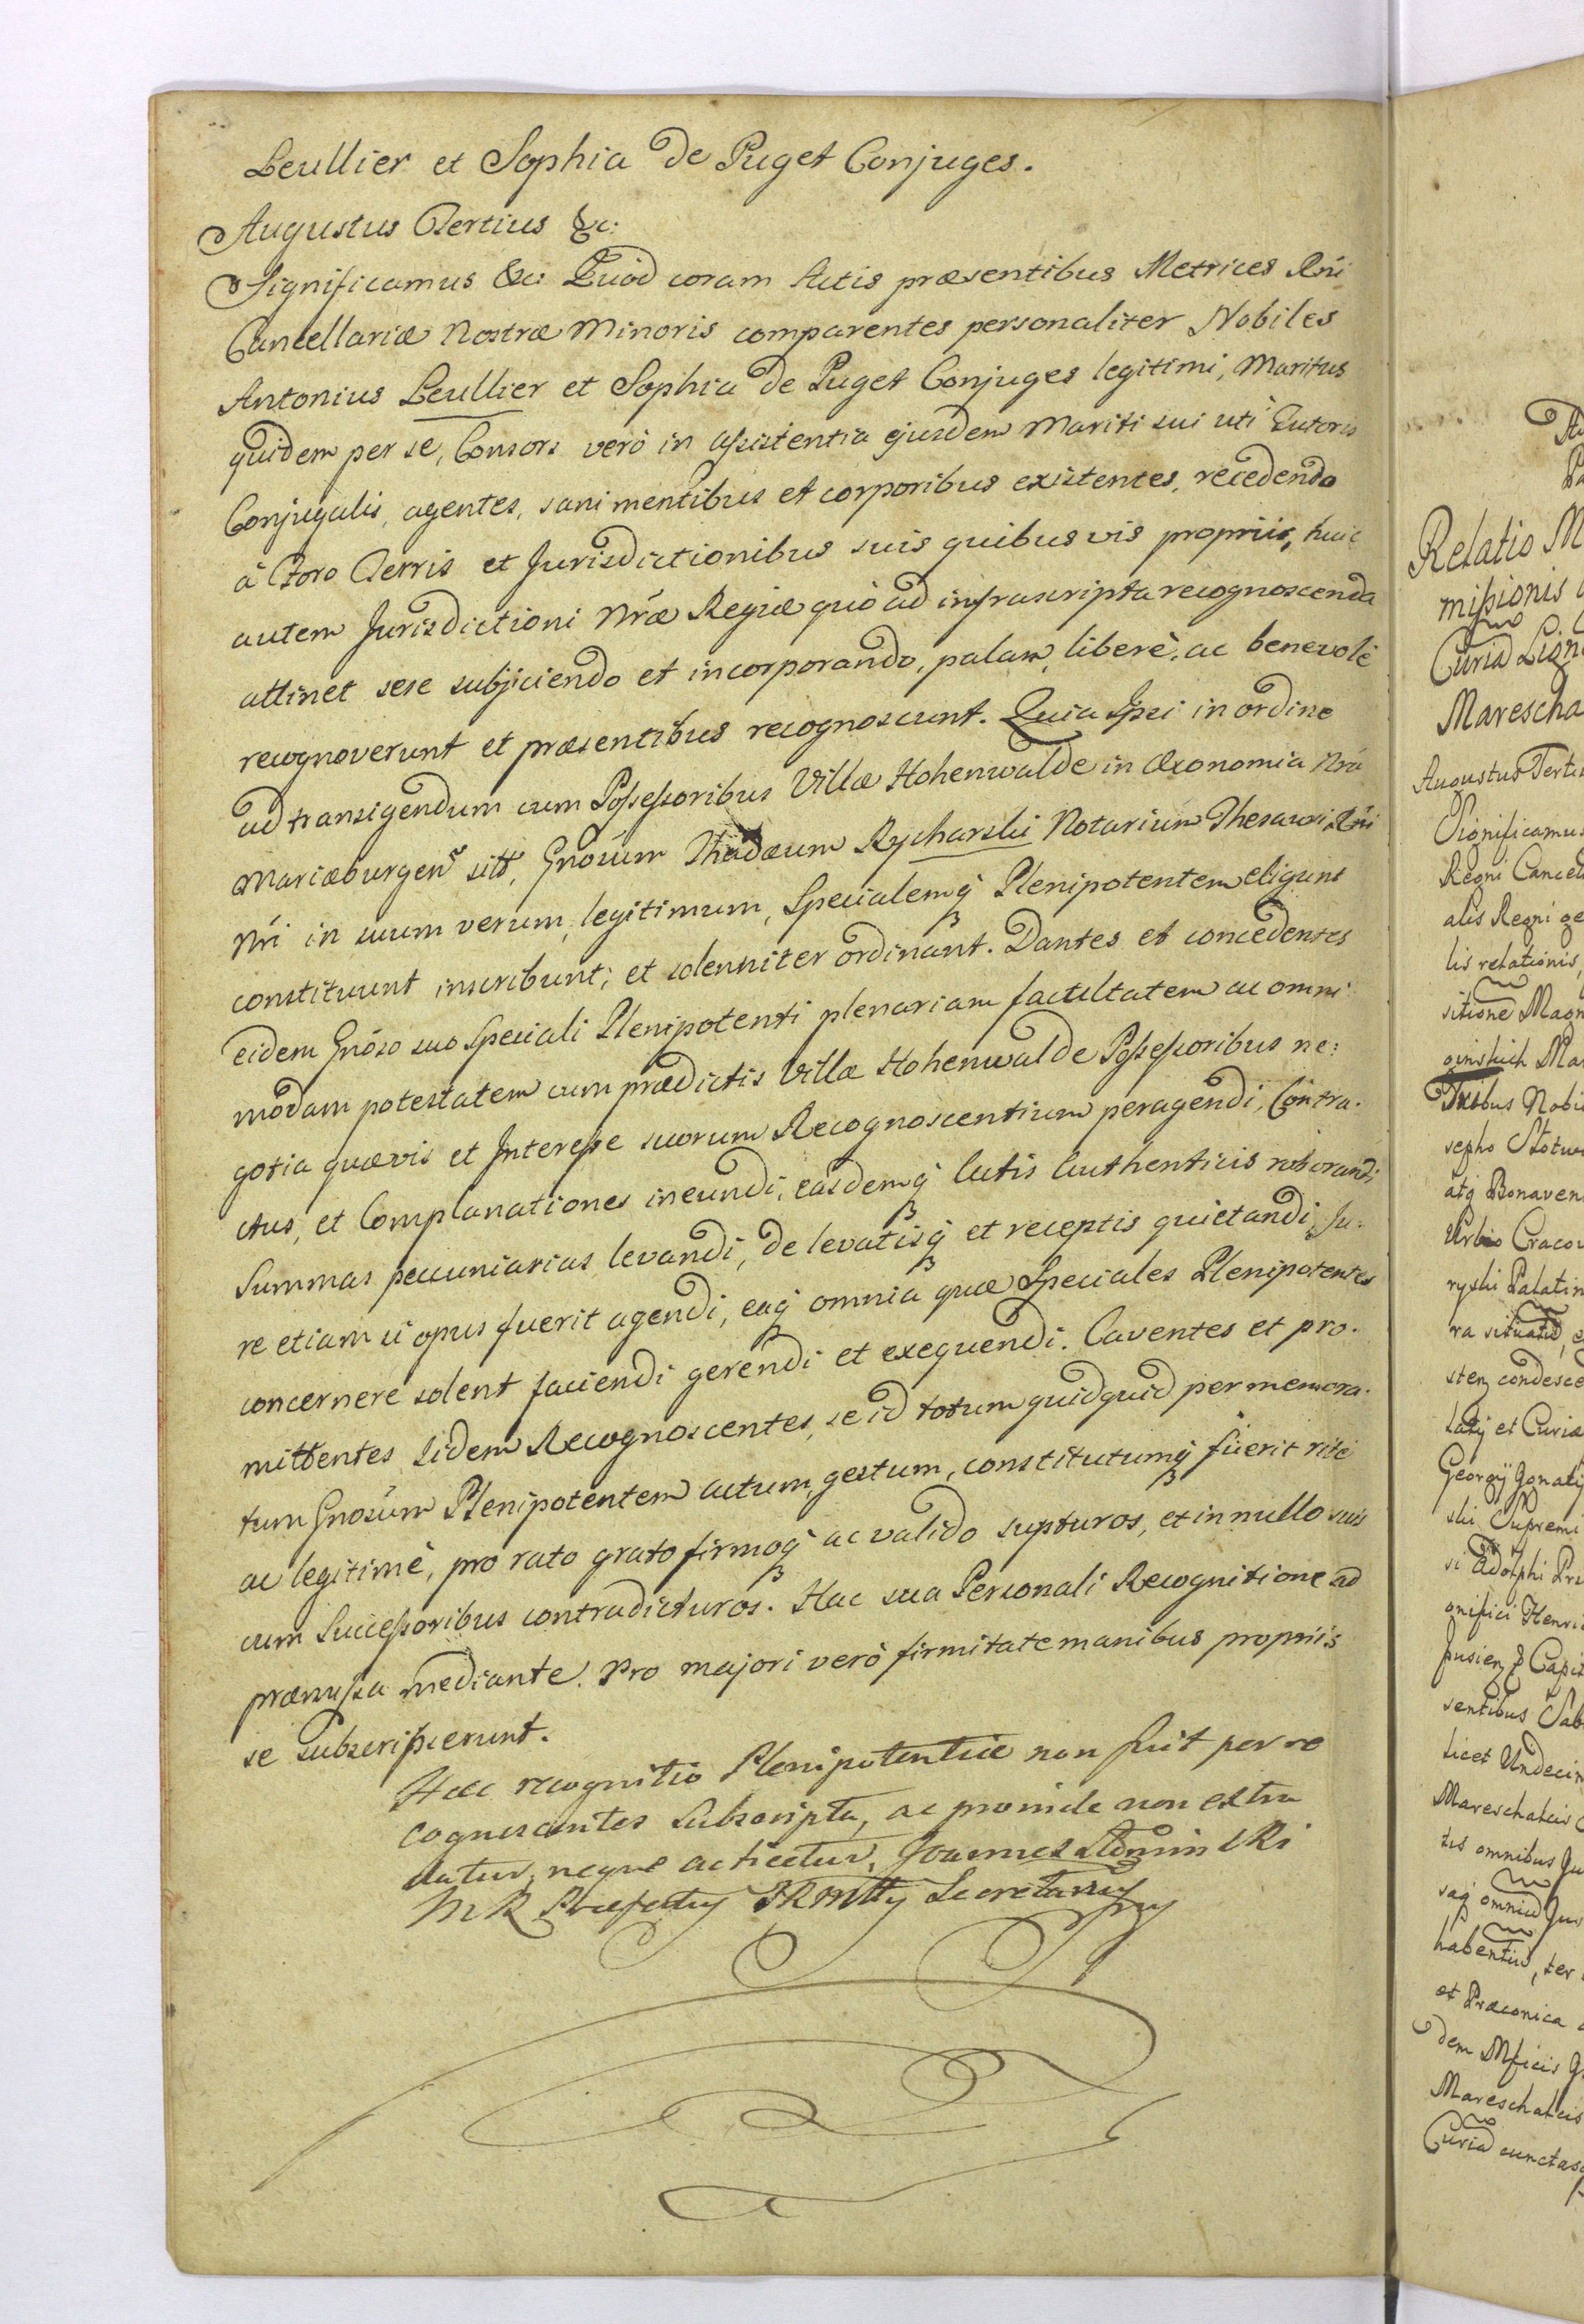 Leullier et Sophia de Puget Conjuges.
Augustus Tertius &c:
Significamus &c: Quòd coram Actis præsentibus Metrices Rńi
Cancellariæ Nostræ Minoris comparentes personaliter Nobiles
Antonius Leullier et Sophia de Puget Conjuges legitimi, Maritus
quidem per se, Consors verò in assistentia ejusdem Mariti sui uti Tutoris
Conjugalis, agentes, sani mentibus et corporibus existentes, recedendo
à Foro Terris et Jurisdictionibus suis quibusvis propriis, huic
autem Jurisdictioni Nŕæ Regiæ quò ad infrascripta recognoscenda
attinet sese subjiciendo et incorporando, palam, liberè, ac benevolè
recognoverunt et præsentibus recognoscunt. Quia Ipsi in ordine
ad transigendum cum Possessoribus Villæ Hohenwalde in Œconomia Nrá
Mariæburgen sitt, Gnósum Thadæum Rycharski Notarium Thesauri Rńi
Nŕi in suum verum, legitimum, Specialemq̃ Plenipotentem eligunt
constituunt inscribunt; et solenniter ordinant. Dantes et concedentes
eidem Gnóso suo Speciali Plenipotenti plenariam facultatem ac omni
modam potestatem cum prædictis Villæ Hohenwalde Possessoribus ne:
gotia quævis et Interesse suorum Recognoscentium peragendi, Contra-
ctus, et Complanationes ineundi, easdemq̃ Actis Authenticis roborandi
Summas pecuniarias levandi, de levatisq̃ et receptis quietandi, Ju:
re etiam si opus fuerit agendi, eaq̃ omnia quæ Speciales Plenipotentes
concernere solent faciendi gerendi et exequendi. Caventes et pro-
mittentes iidem Recognoscentes, se id totum quidquid per memora-
tum Gnosúm Plenipotentem actum, gestum, constitutumq̃ fuerit ritè
ac legitimè, pro rato grato firmoq̃ ac valido supturos, et in nullo suis
cum Successoribus contradicturos. Hac sua Personali Recognitione ad
præmissa mediante. Pro majori verò firmitate manibus propriis
se subscripserunt.
Hæc recognitio Plenipotentiæ non fuit per re
cognoscentes subscripta, ac proinde non extra
datur, neque acticetur. Joannes
MR Præfectus SRMtty Secretarius
Relatio M
missionis
Curiâ Lign
Marescha
Augustus Terti
Significamus
Regni Cancel
alis Regni ge
lis relationis,
sitione Magn
ginskich Ma
Tribus Nobi
sepho Stotw
atq̃ Bonaven
Urbis Cracov
ryski Palatin
ra situatâ, e
sten condesce
latij et Curiæ
Georgij Ignatij
ski Supremi
si Adolphi Pr
gnifici Henri
Capit
sentibus Sab
licet Undecim
Mareschalcis C
tis omnibus Ju
saq̃ omnia Jur
habentiû, ter
et Præconica
dem Mficis G
Mareschalcis
Curiâ cunctas